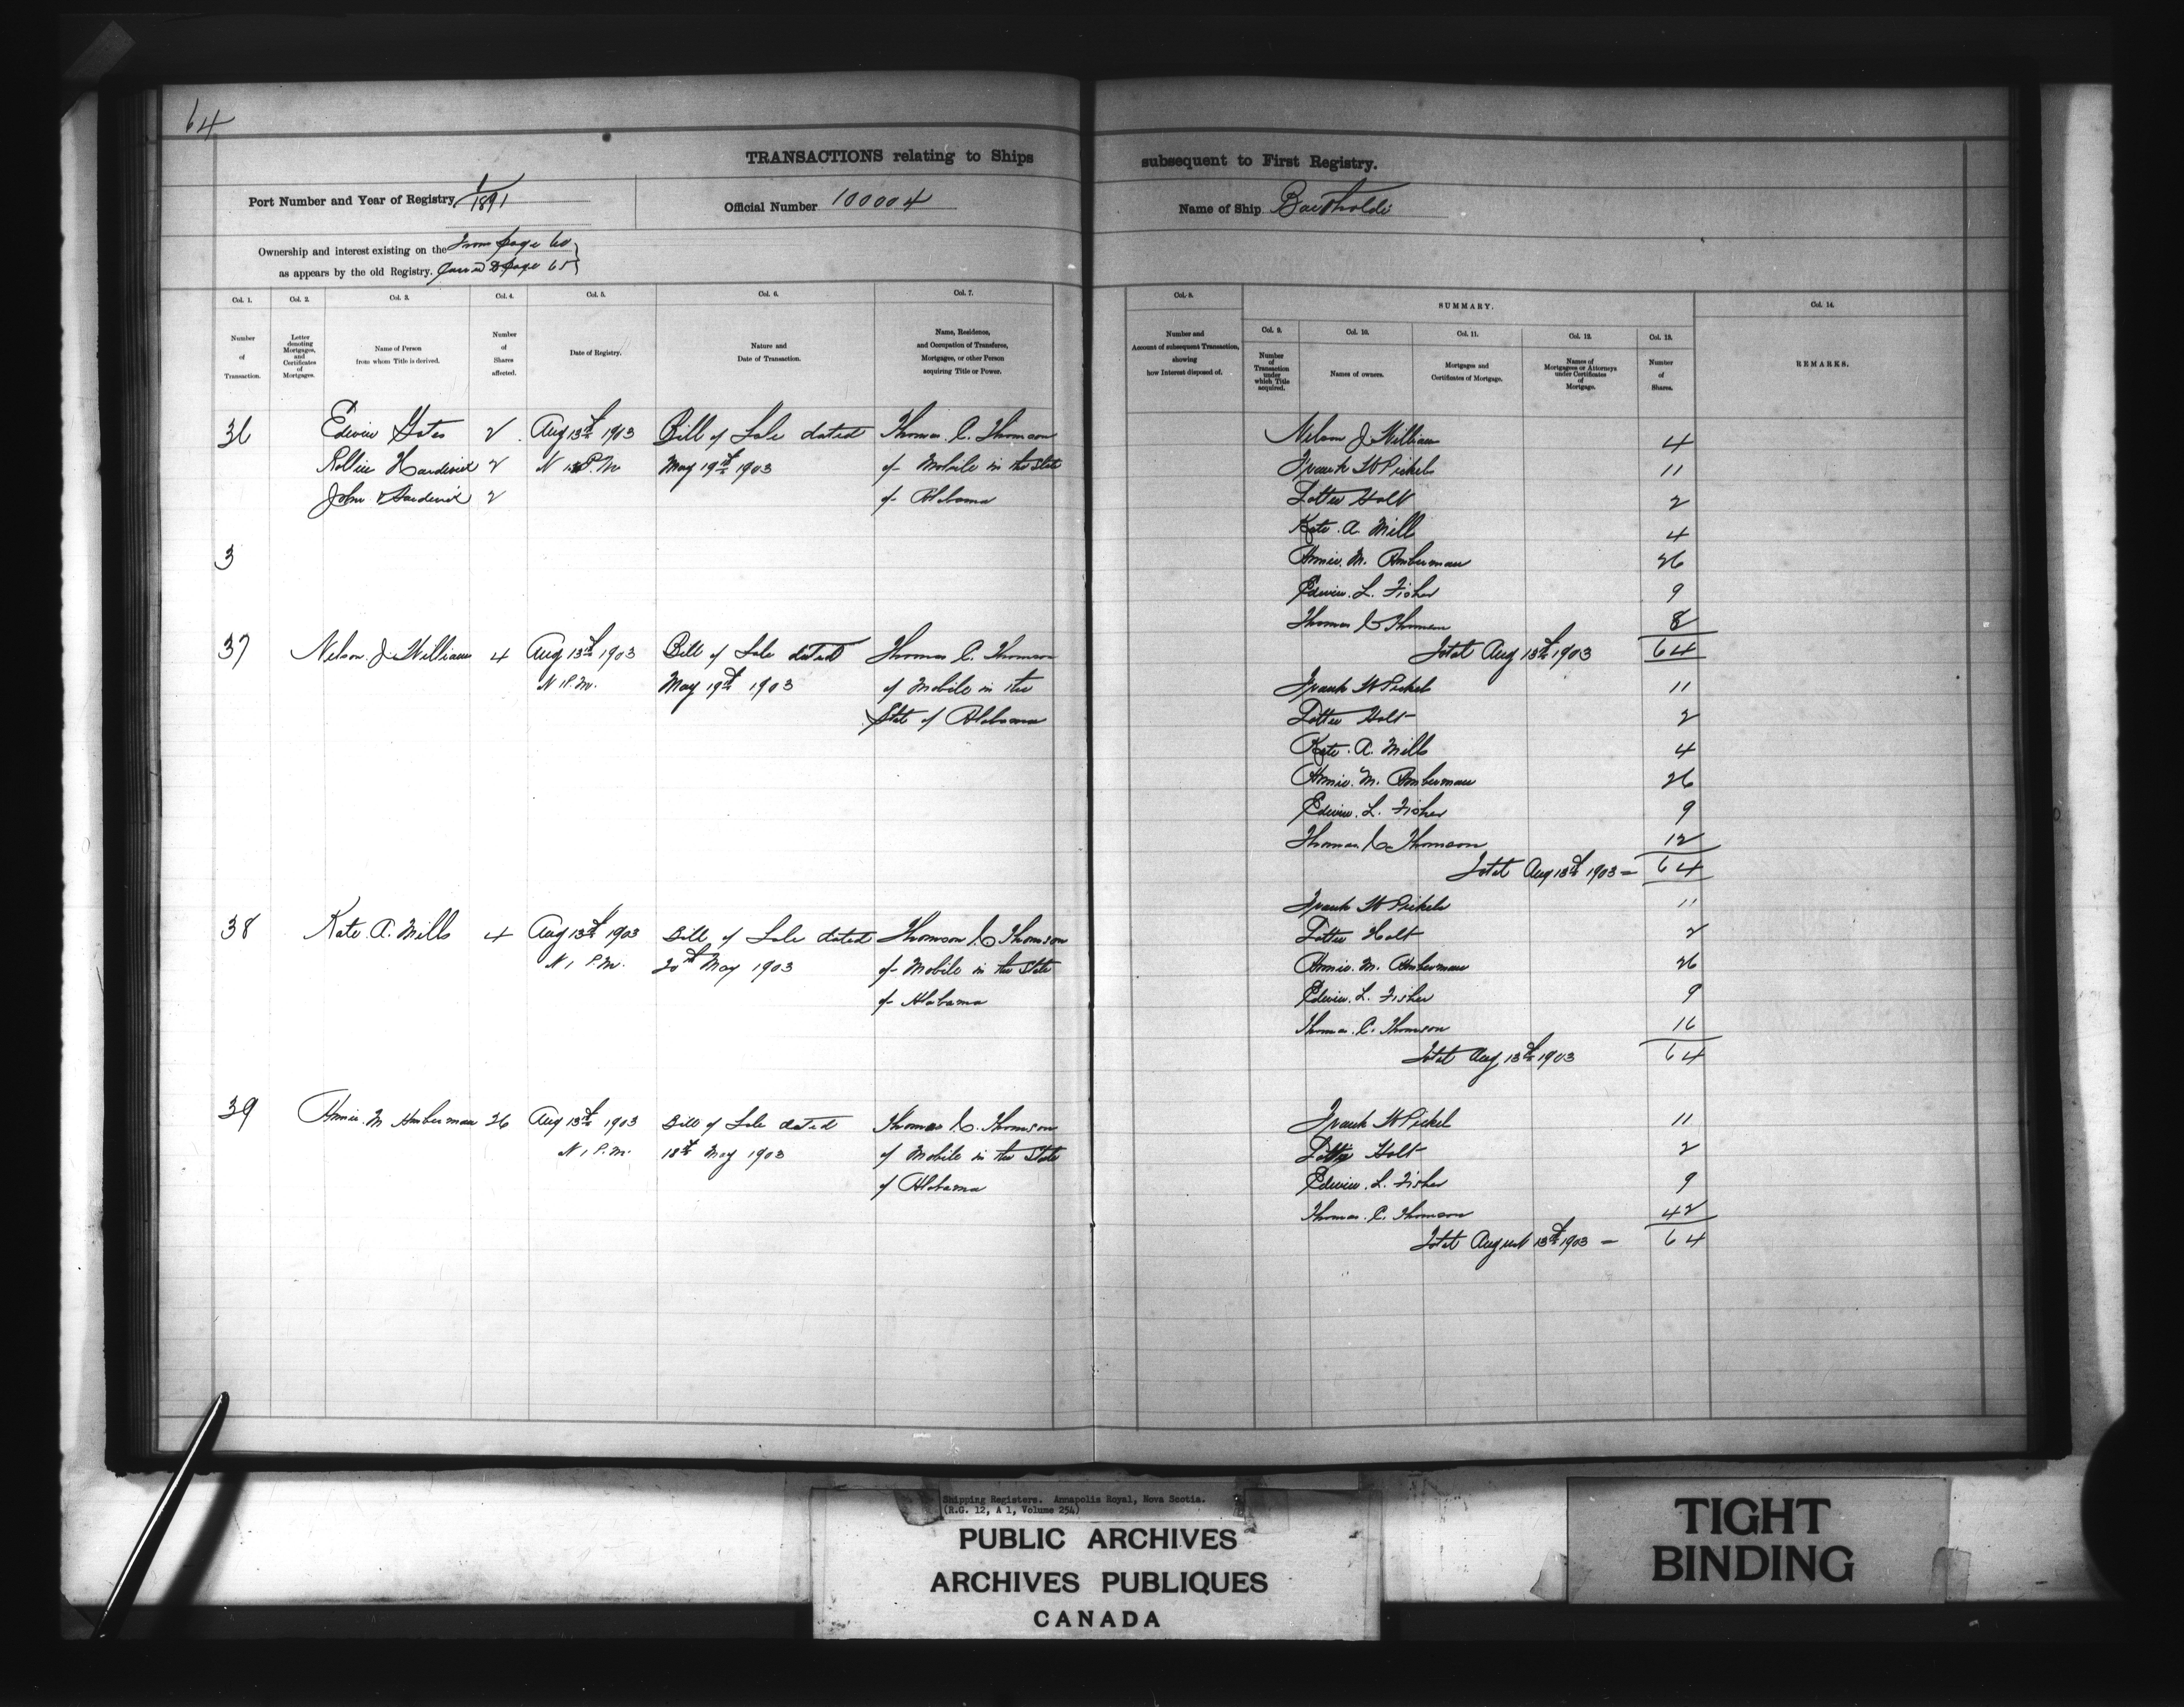 64
TRANSACTIONS relating to Ships subsequent to First Registry.
Port Number and Year of Registry 1/1891
Official Number 100004
Name of Ship Bartholdi
Ownership and interest existing on the From page 60
as appears by the old Registry. Carried to page 65
Col. 1. Col. 2. Col. 3. Col. 4. Col. 5. Col. 6. Col. 7.
Number of Transaction.
Letter denoting Mortgages, and Certificates of Mortgages.
Name of Person from whom Title is derived.
Number of Shares affected.
Date of Registry.
Nature and Date of Transaction.
Name, Residence, and Occupation of Transferee, Mortgagee, or other Person acquiring Title or Power.
Col. 8.
Number and Account of subsequent Transaction, showing how Interest disposed of.
SUMMARY.
Col. 9. Col. 10. Col. 11. Col. 12. Col. 13.
Number of Transaction under which Title acquired.
Names of owners.
Mortgages and Certificates of Mortgage.
Names of Mortgagees or Attorneys under Certificates of Mortgage.
Number of Shares.
Col. 14.
REMARKS.
36 Edwin Gates 2 Aug 13th 1903 Bill of Sale dated Thomas C. Thomson
Hardwick 2 P.M. May 19th 1903 of Mobile in the State
John Hardwick 2 of Alabama
3
37 Nelson J. Williams 4 Aug 13th 1903 Bill of Sale dated Thomas C. Thomson
N 1 P.M. May 19th 1903 of Mobile in the
State of Alabama
38 Kate. A. Mills 4 Aug 13th 1903 Bill of Sale dated Thomson C Thomson
N 1 P.M. 20th May 1903 of Mobile in the State
of Alabama
39 Annie. M Amberman 26 Aug 13th 1903 Bill of Sale dated Thomas C. Thomson
N 1 P.M. 18th May 1903 of Mobile in the State
of Alabama
Nelson J William 4
Frank W Pickels 11
Lottie Holt 2
Kate. A. Mill 4
Annie. M. Amberman 26
Edwin. L. Fisher 9
Thomas C Thomson 8
Total Aug 13th 1903 64
Frank W Pickel 11
Lottie Holt 2
Kate. A. Mills 4
Annie. M. Amberman 26
Edwin. L. Fisher 9
Thomas. C. Thomson 12
Total Aug 13th 1903 – 64
Frank W Pickels 11
Lottie Holt 2
Annie. M. Amberman 26
Edwin. L. Fisher 9
Thomas. C. Thomson 16
Total Aug 13th 1903 64
Frank W Pickel 11
Holt 2
Edwin. L. Fisher 9
Thomas. C. Thomson 42
Total August 13th 1903 – 64
Shipping Registers. Annapolis Royal, Nova Scotia.
(R.G. 12, A 1, Volume 254)
PUBLIC ARCHIVES
ARCHIVES PUBLIQUES
CANADA
TIGHT
BINDING